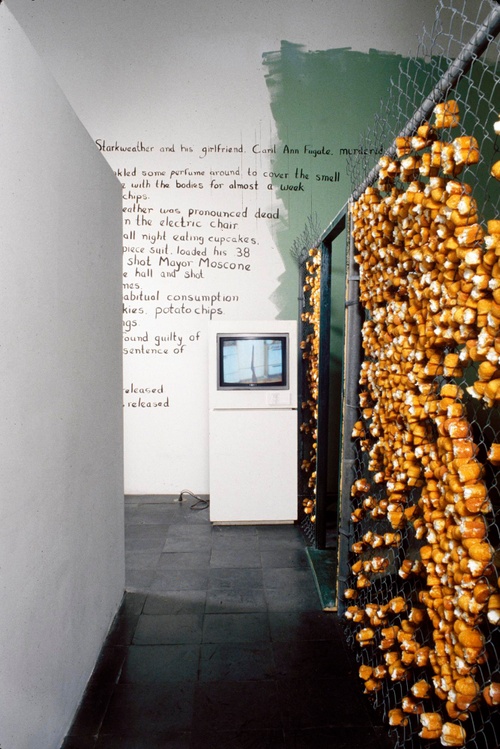 Starkweather and his girlfriend, Caril Ann Fugate, murdered
some perfume around to cover the smell
with the bodies for almost a week
chips.
was pronounced dead
n the electric chair
all night eating cupcakes,
piece suit, loaded his 38
shot Mayor Moscone
e hall and shot
mes.
abitual consumption
kies, potato chips
ngs
ound guilty of
sentence of
released
released